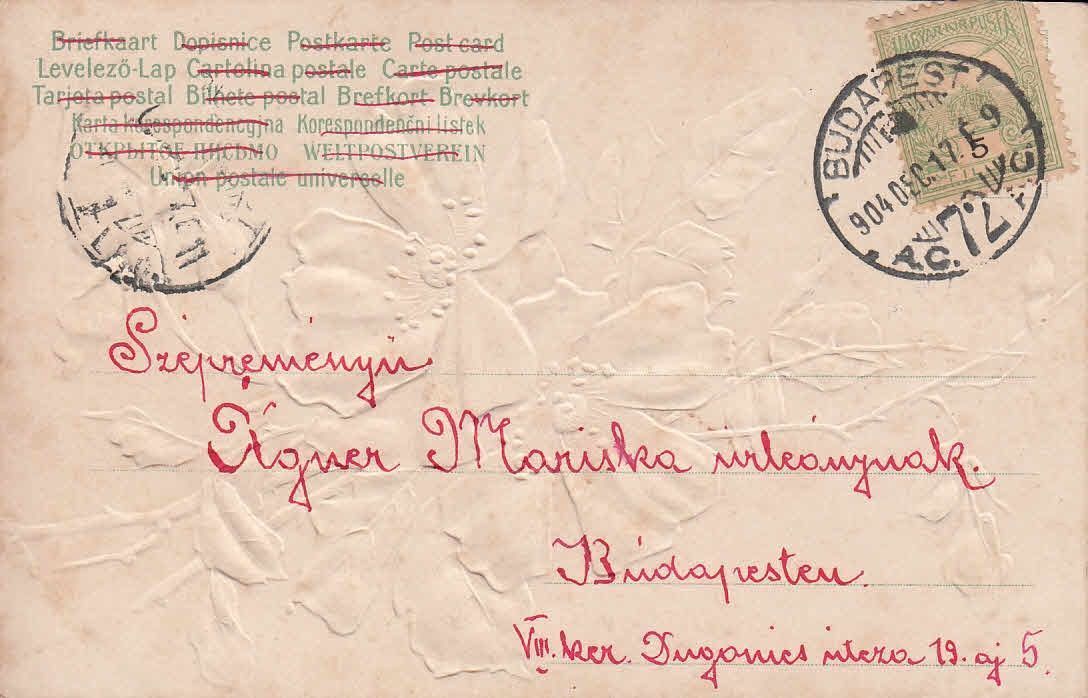 Briefkaart Dopisnice Postkarte Post card
Levelező-Lap Cartolina postale Carte postale
Tarjeta postal Bilhete postal Brefkort Brevkort
Karta korespondencyjna Korespondenční listek
ОТКРЫТОЕ ПИСЬМО WELTPOSTVEREIN
Union postale universelle
MAGYAR KIR. POSTA
BUDAPEST
904 DEC. 17.
72
Szépreményű
Ágner Mariska urleánynak.
Budapesten
VIII. ker. Dugonics utcza 19. aj 5.